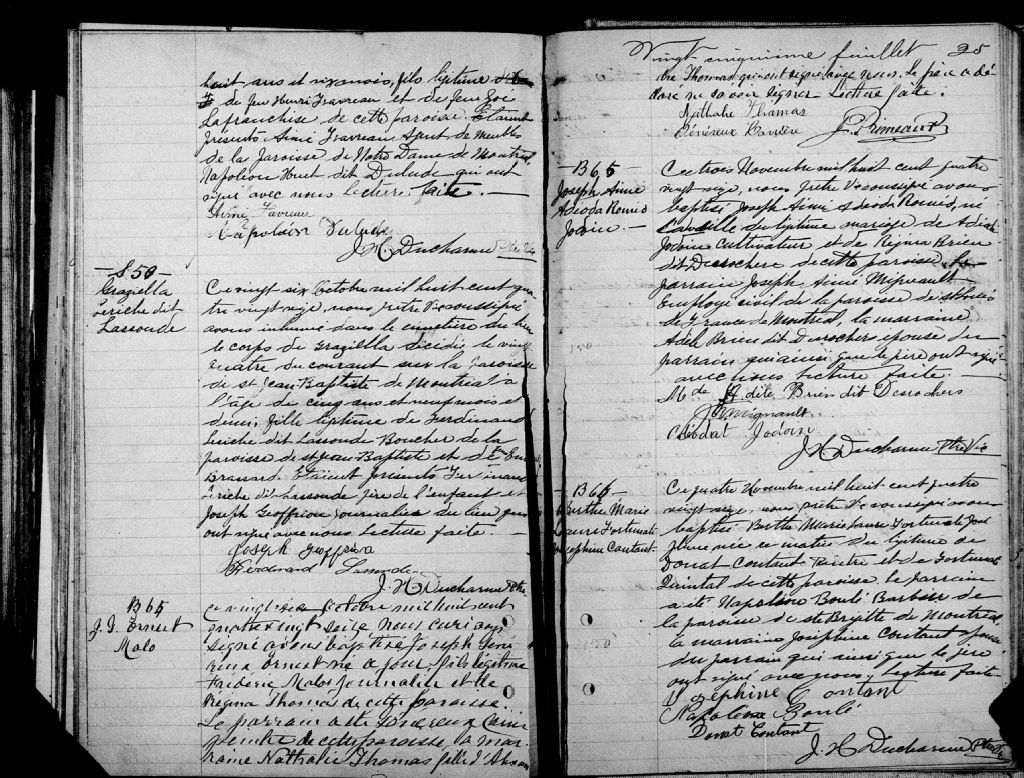 huit ans et six mois, fils légitime
de feu Henri Favreau et de feue Zoé
Lafranchise de cette paroisse. Étaient
présents Aimé Favreau agent de meubles
de la Paroisse de Notre Dame de Montréal
Napoléon Huet dit Dulude qui ont
signé avec nous lecture faite. —
Aimé Favreau
Napoléon Dulude
J. H. Ducharme Ptre Vic
— S 50 —
Graziella
Lériche dit
Lassonde
Ce vingt six Octobre mil huit cent qua
tre vingt seize, nous prêtre Vic soussigné
avons inhumé dans le cimetière du lieu
le corps de Graziella décédée le vingt
quatre du courant sur la paroisse
de St Jean Baptiste de Montréal à
l'âge de cinq ans et neuf mois et
demi, fille légitime de Ferdinand
Lériche dit Lassonde Boucher de la
paroisse de St Jean Baptiste et de
Brassard. Étaient présents Ferdinand
Lériche dit Lassonde père de l'enfant et
Joseph Geoffrion journalier du lieu qui
ont signé avec nous, lecture faite. —
Joseph Geoffrion
Ferdinand Lassonde
J. H. Ducharme Ptre
B 65
J. G. Ernest
Malo
Ce vingt six octobre mil huit cent
quatre vingt seize nous curé sous
signé avons baptisé Joseph Géné
reux Ernest né ce jour fils légitime
Frédéric Malo journalier et de
Régina Thomas de cette paroisse.
Le parrain a été Généreux Carrière
peintre de cette paroisse, la mar
raine Nathalie Thomas fille d'
Vingt cinquième feuillet 25
dré Thomas qui ont signé avec nous. Le père a dé
claré ne savoir signer. Lecture faite.
Nathalie Thomas
Généreux Carrière J. Primeau Ptre
— B 65
Joseph Aimé
Adéoda Roméo
Jodoin. —
Ce trois Novembre mil huit cent quatre
vingt seize, nous prêtre Vic soussigné avons
baptisé Joseph Aimé Adéoda Roméo, né
la veille du légitime mariage de
Jodoin Cultivateur et de Régina Brien
dit Desrochers de cette paroisse. Le
parrain Joseph Aimé Mignault
Employé civil de la paroisse de St Louis
de France de Montréal, la marraine
Adèle Brien dit Desrochers épouse du
parrain qui ainsi que le père ont signé
avec nous lecture faite. —
Mde Adèle Brien dit Desrochers
J A Mignault
Déodat Jodoin
J. H. Ducharme Ptre Vic
— B 66 —
Berthe Marie
Laure Fortunate
Joséphine Contant.
Ce quatre Novembre mil huit cent quatre
vingt seize, nous prêtre Vic soussigné avons
baptisé Berthe Marie Laure Fortunate José
phine née ce matin du légitime de
Donat Contant Peintre et de Fortunate
Quintal de cette paroisse. Le parrain
a été Napoléon Boulé Barbier de
la paroisse de Ste Brigitte de Montréal
la marraine Joséphine Contant épouse
du parrain qui ainsi que le père
ont signé avec nous, lecture faite.
Joséphine Contant
Napoléon Boulé
Donat Contant
J. H. Ducharme Ptre Vic